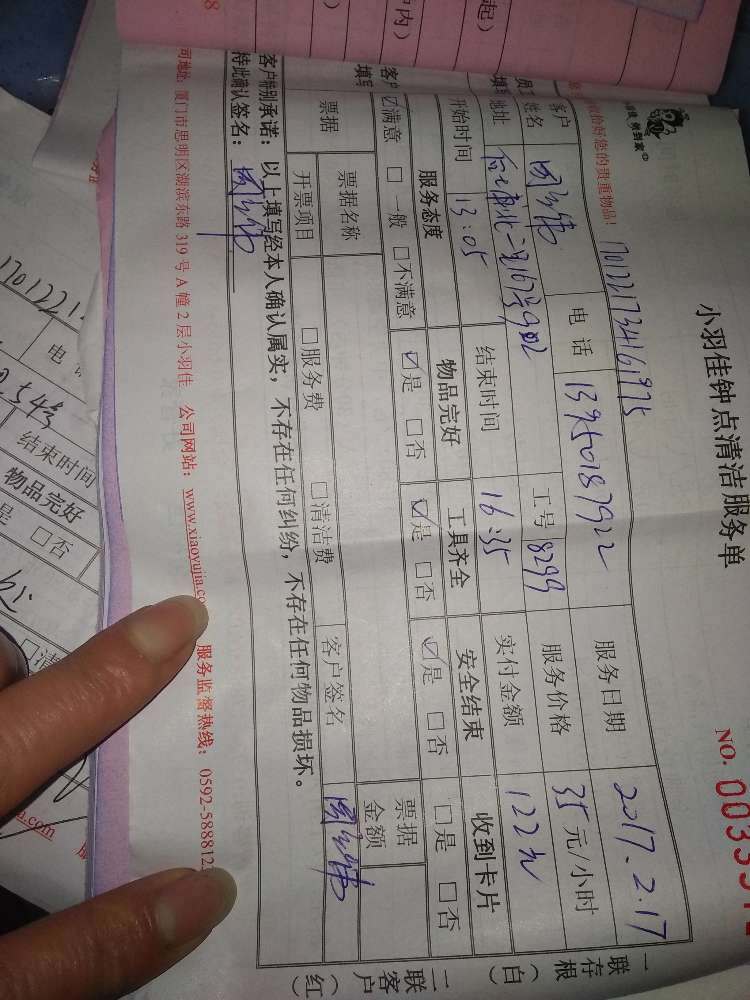 起）
内）
小羽佳钟点清洁服务单
NO. 00333
您的贵重物品！
170221734161975
客户 电话 13950187922 服务日期 2017.2.17
姓名 工号 8299 服务价格 35元/小时
填写 地址
开始时间 13:05 结束时间 16:35 实付金额 122元
客户 服务态度 物品完好 工具齐全 安全结束 收到卡片
填写 ☑满意 □一般 □不满意 ☑是 □否 ☑是 □否 ☑是 □否 □是 □否
票据 票据名称 票据金额
开票项目 □服务费 □清洁费 客户签名
客户特别承诺：以上填写经本人确认属实，不存在任何纠纷，不存在任何物品损坏。
持此确认签名：
司地址：厦门市思明区湖滨东路 319 号 A 幢 2 层小羽佳 公司网站：www.xiaoyujia.co 服务监督热线：0592-588812
一联存根（白）
二联客户（红）
电
结束时间
物品完好
是 □否
□清
.com